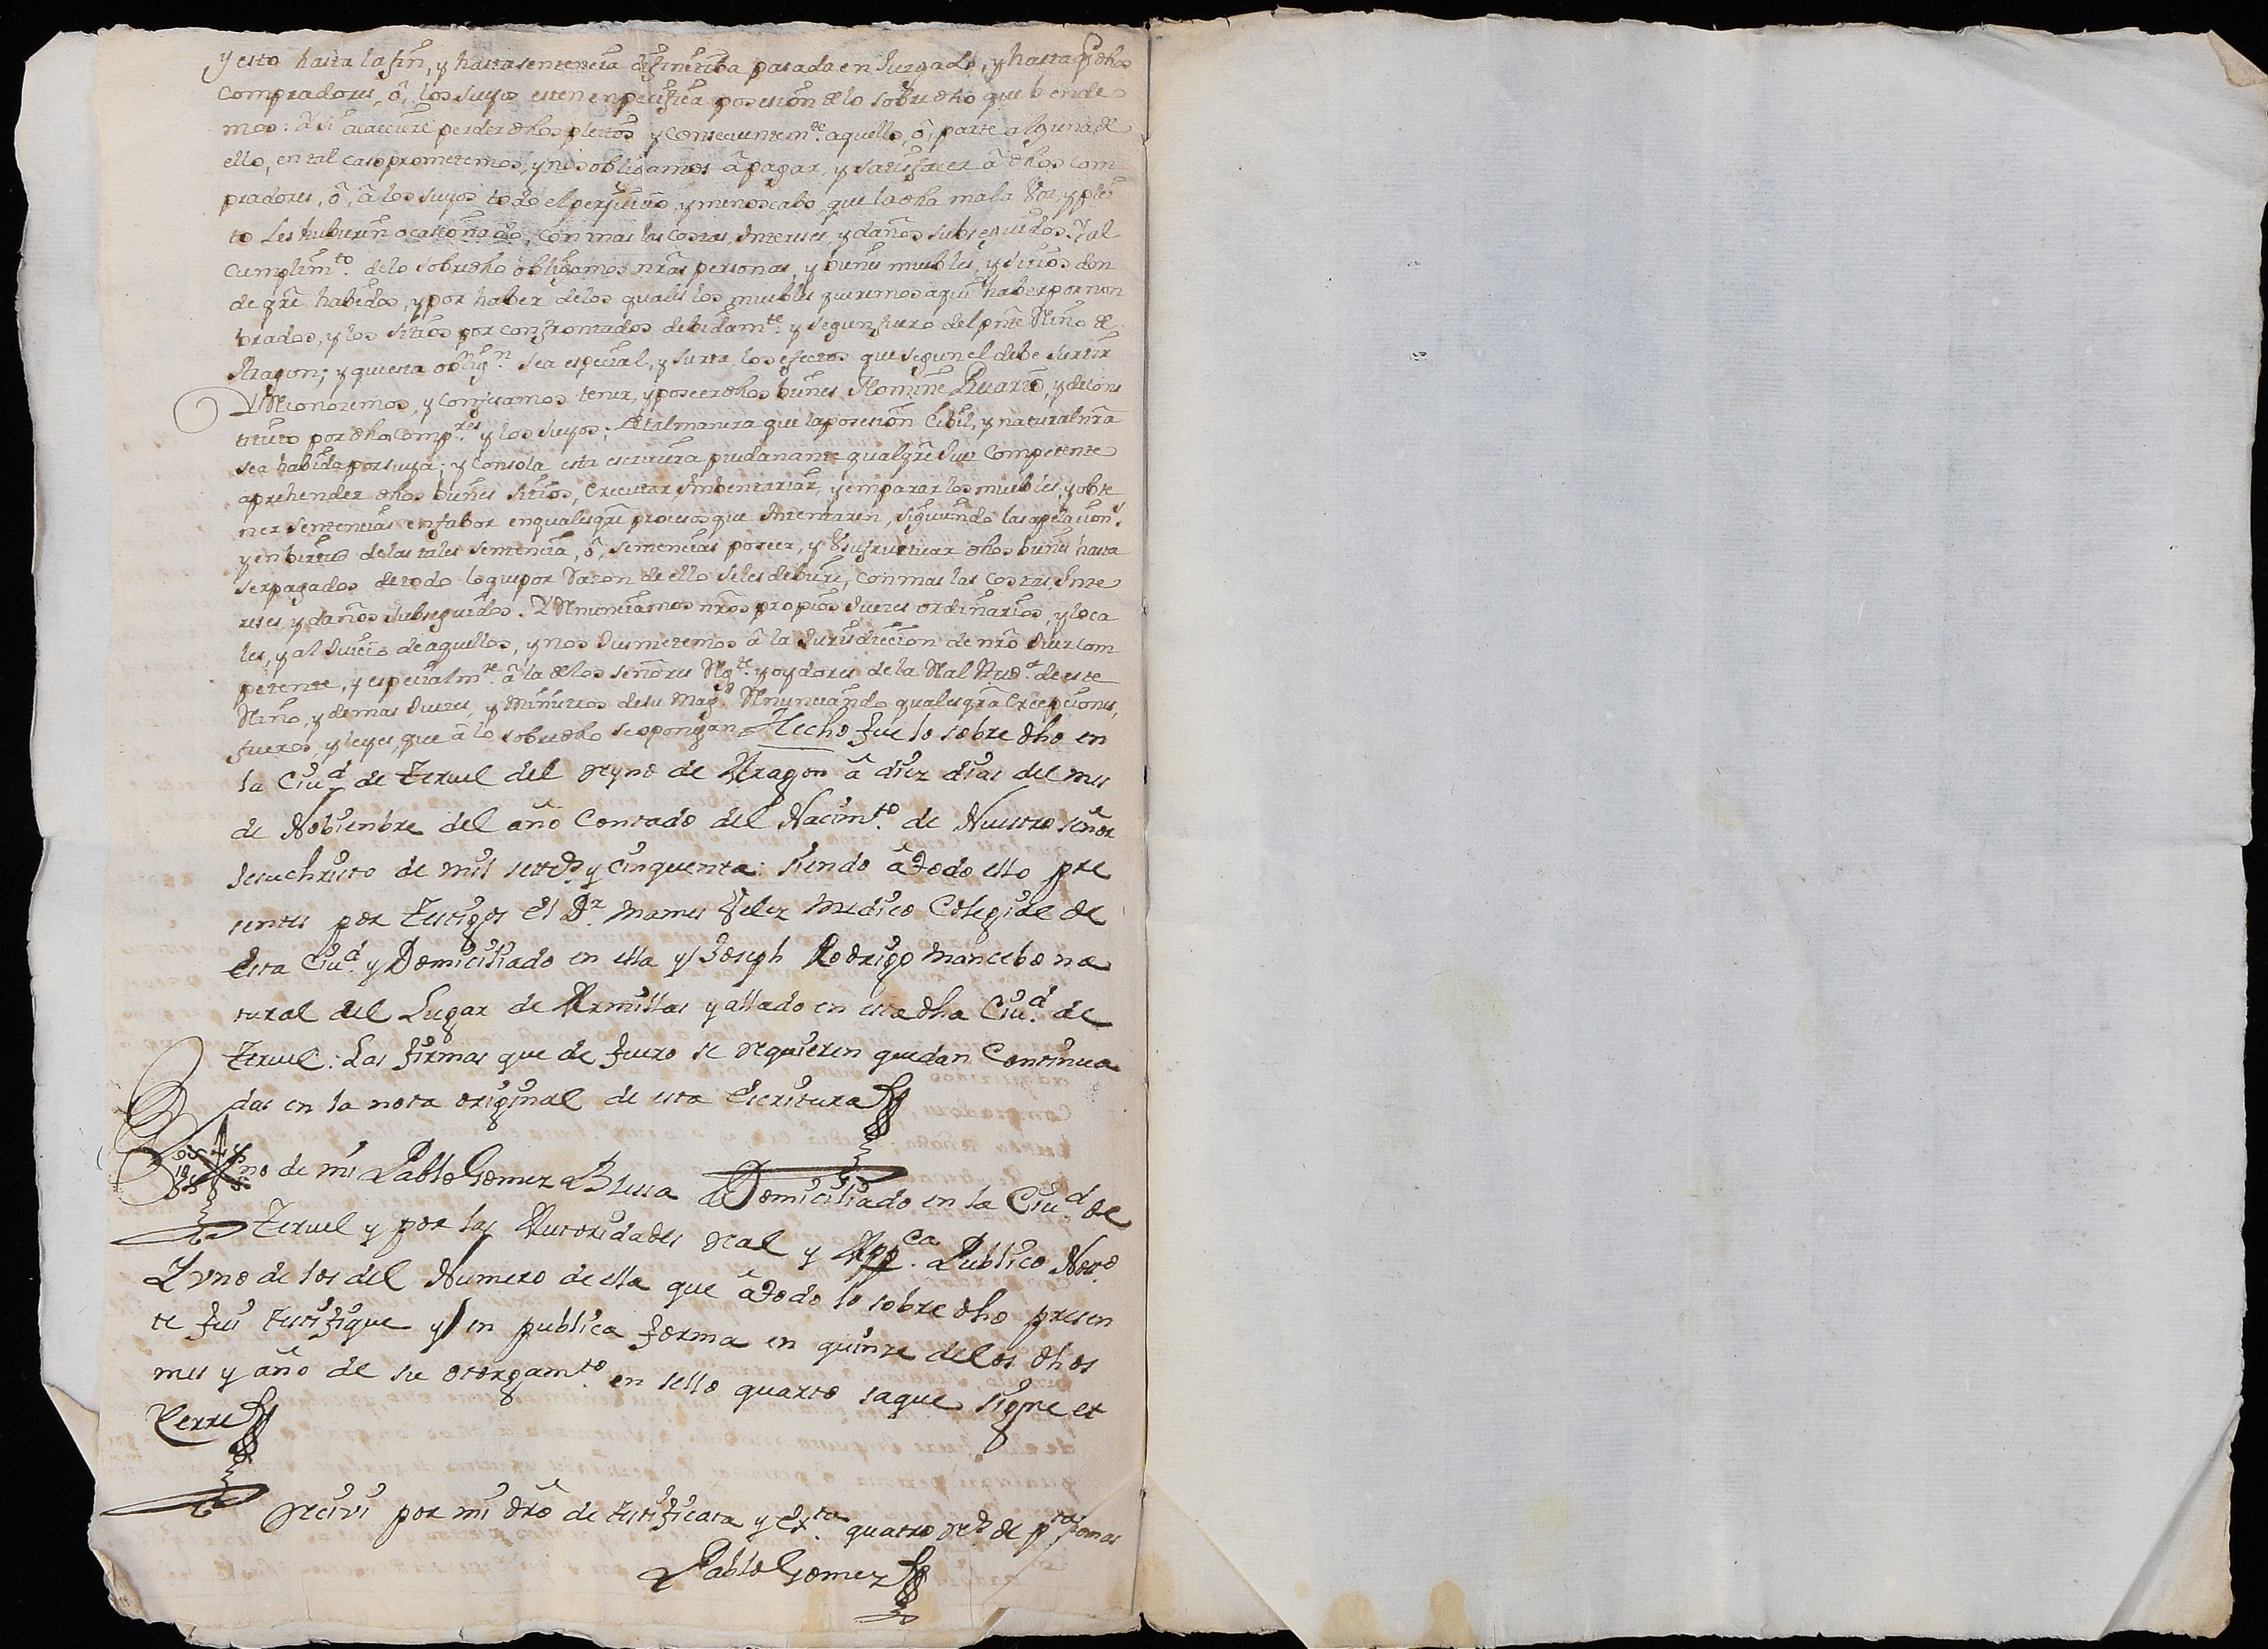 y esto hasta la fin, y hasta sentencia difinitiba pasada en Juzgado, y hasta q̃ dhos
compradores, ô, los suyos esten en pacifica posesion de lo sobredho que bende
mos: Y si acaeciere perder dhos pleitos y consecuentem.te aquello, ô, parte alguna de
ello, en tal caso prometemos, y nos obligamos â pagar, y satisfacer â dhos com
pradores, ô, â los suyos todo el perjuicio, y menoscabo que la dha mala voz, y plei
to les hubieren ocasionado, con mas las costas, Intereses, y daños subseguidos. Y al
cumplim.to de lo sobredho obligamos nras personas, y bienes muebles, y sitios don
de qre habidos, y por haber de los quales los muebles queremos aqui haber por nom
brados, y los sitios por confrontados debidam.te y segun fuero del pnte Rno de
Aragon; y que esta oblig.n sea especial, y surta los efectos que segun el debe surtir
Y Reconozemos, y confesamos tener, y poseer dhos bienes Nomine Precario, y de cons
tituto por dhos comp.res y los suyos; de tal manera que la posesion Cibil, y natural nra
sea habida por suya; y con sola esta escritura puedan ante qualqre Juez competente
aprehender dhos bienes sitios, executar, Imbentariar, y emparar los muebles, y obte
ner sentencias en fabor en qualesqre procesos que Intentaren, siguiendo las apelacion.s
y en birtud de las tales sentencia, ô, sentencias poseer, y Usufructuar dhos bienes hasta
ser pagados de todo lo que por Razon de ello se les debiere, con mas las costas, Inte
reses, y daños subseguidos. Y Renunciamos nros propios Jueces ordinarios, y loca
les, y al Juicio de aquellos, y nos Jusmetemos â la Jurisdiccion de nro Juez com
petente, y especialm.te â la de los señores Rg.te y oydores de la Rl Aud.a de este
Rno, y demas Jueces, y Ministros de su Mag.d Renunciando qualesqra excepciones,
fueros, y leyes, que â lo sobredho se opongan Hecho fue lo sobre dho en
la Ciu.d de Teruel del Reyno de Aragon â diez dias del mes
de Nobienbre del año Contado del Nacim.to de Nuestro señor
Jesuchristo de mil sette.s y cinquenta: siendo â todo ello pre
sentes por testigos el D.r Mames Velez Medico Colegial de
esta Ciu.d y Domiciliado en ella y Joseph Rodrigo Mancebo na
tural del Lugar de Armillas y allado en esta dha Ciu.d de
Teruel: Las firmas que de fuero se requieren quedan Continua
das en la nota original de esta Escritura
Sig no de mi Pablo Gomez Blesa Domiciliado en la Ciu.d de
Teruel y por las Autoridades Real y App.ca Publico Not.o
Y uno de los del Numero de ella que â todo lo sobre dho presen
te fui testifique y en publica forma en quinze de los dhos
mes y año de su otorgam.to en sello quarto saque signe et
Cerre
Recivi por mi dro de testificata y ext.ta quatro Re.s de p.ta
Pablo Gomez